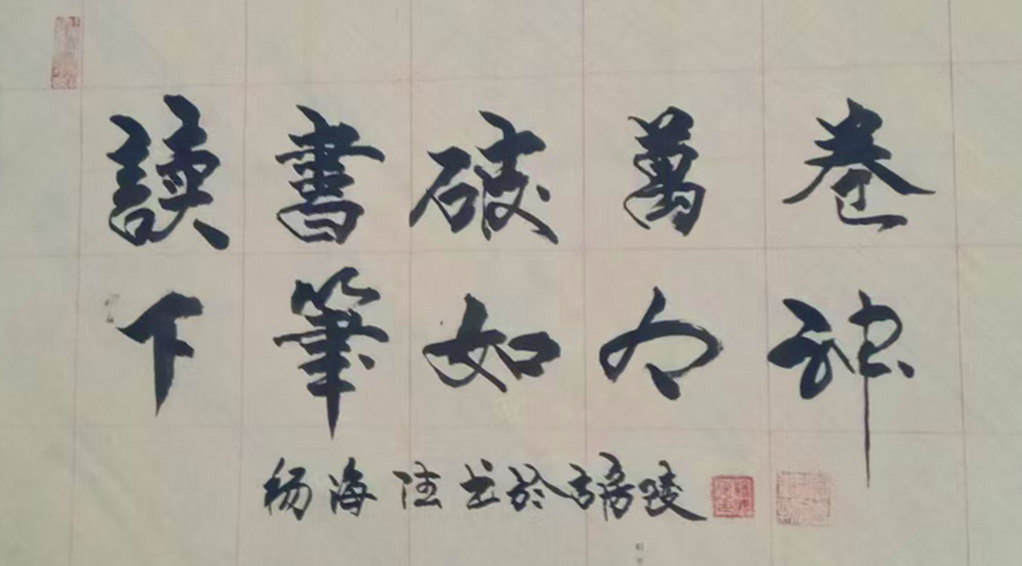 讀書破萬卷
下筆如有神
杨海陆书於古房陵